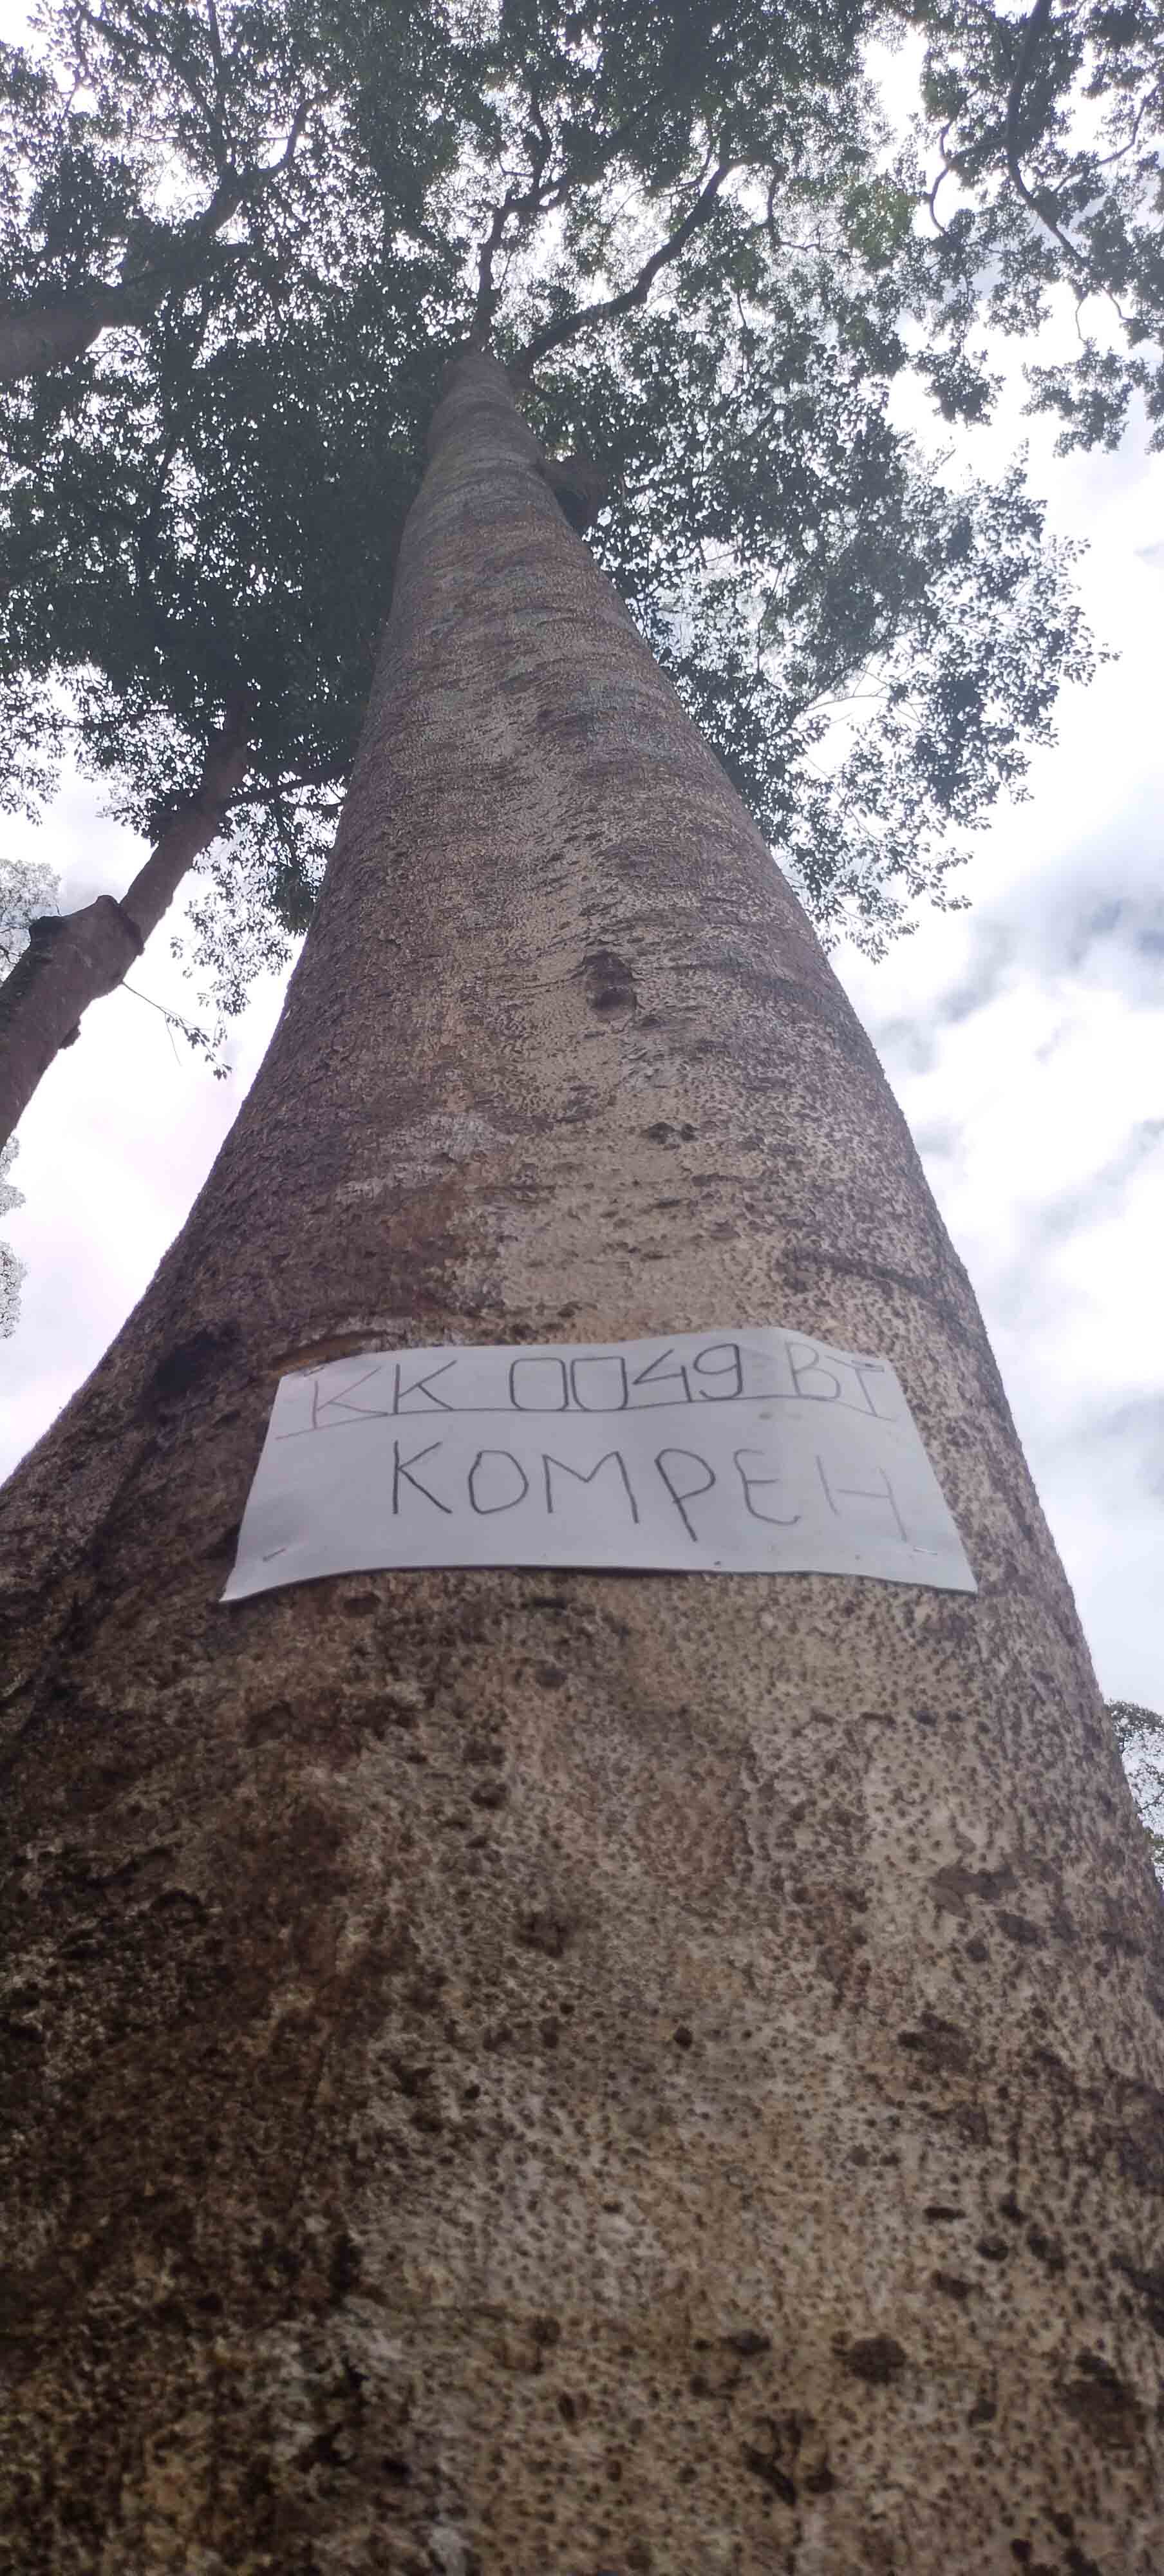 KK 0049 BT
KOMPEH